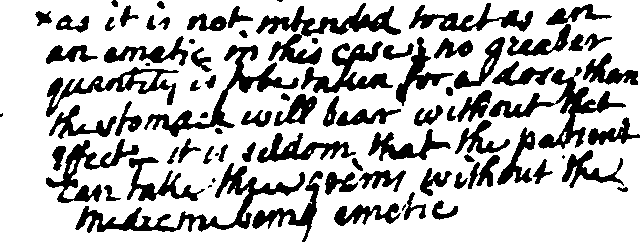 *as it is not intended to act as an
an emetic in this case; no greater
quantity is to be taken for a dose, than
the stomach will bear without that
effect. it is seldom that the patient
can take three grains without the
medicine being emetic